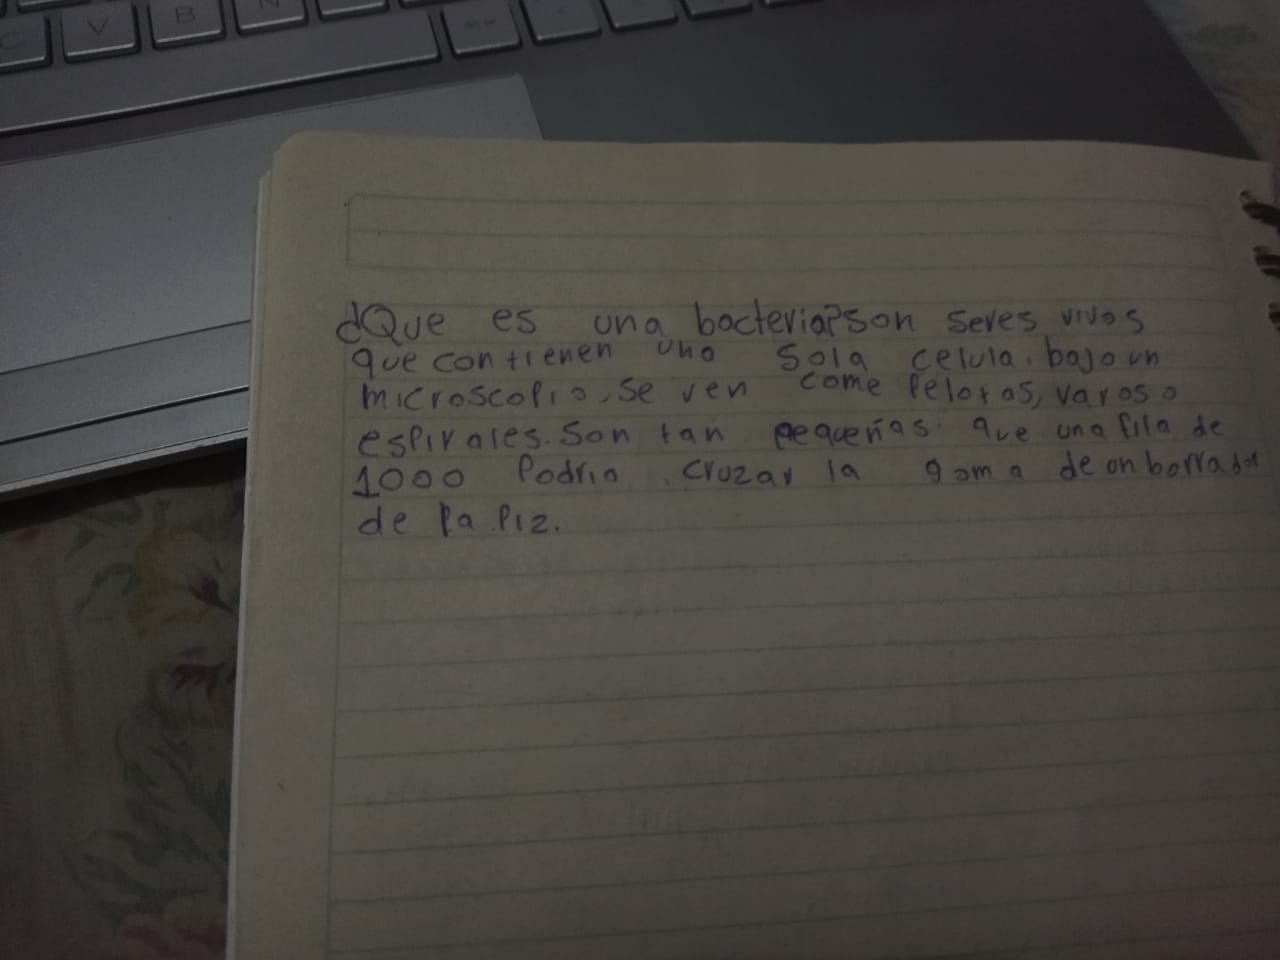 C V B N
¿Que es una bacteria?son seres vivos
que contienen una sola celula. bajo un
microscopio, se ven come pelotas, varos o
espirales. Son tan pequeñas que una fila de
1000 Podria cruzar la goma de un borrador
de la piz.